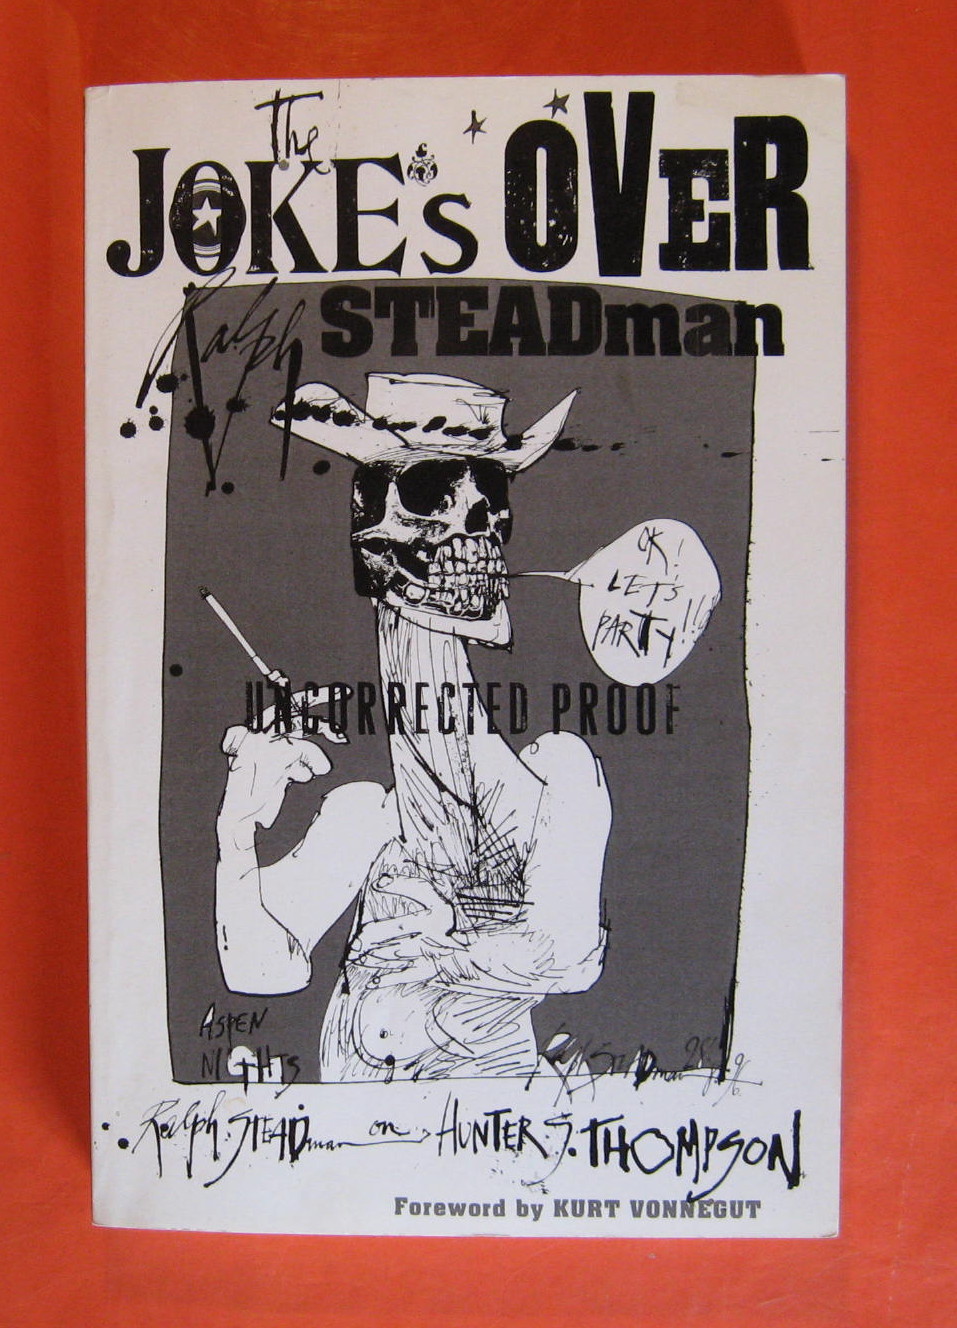 The
JOKE's OVER
Ralph STEADman
OK!
LETS
PARTY!!
UNCORRECTED PROOF
ASPEN
NIGHTS
Ralph STEADman
Ralph STEADman on HUNTER S. THOMPSON
Foreword by KURT VONNEGUT